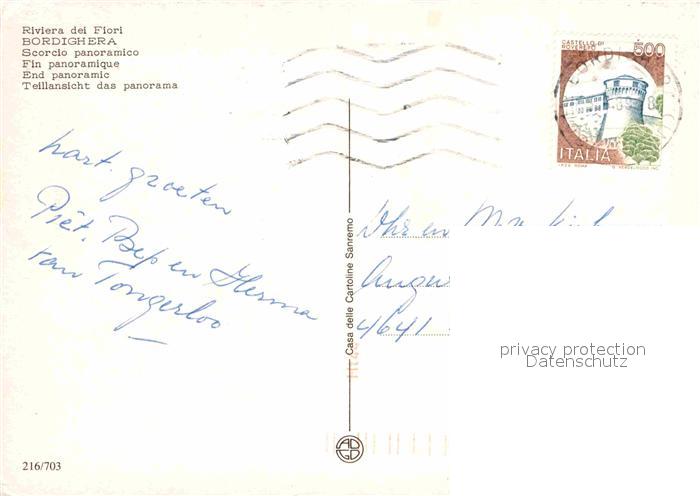 Riviera dei Fiori
BORDIGHERA
Scorcio panoramico
Fin panoramique
End panoramic
Teillansicht das panorama
CASTELLO DI
ROVERETO
500
ITALIA
hart. groeten
Piet. Bep en Herma
van Tongerloo
Dhr en Mw
4641
Casa delle Cartoline Sanremo
privacy protection
Datenschutz
216/703